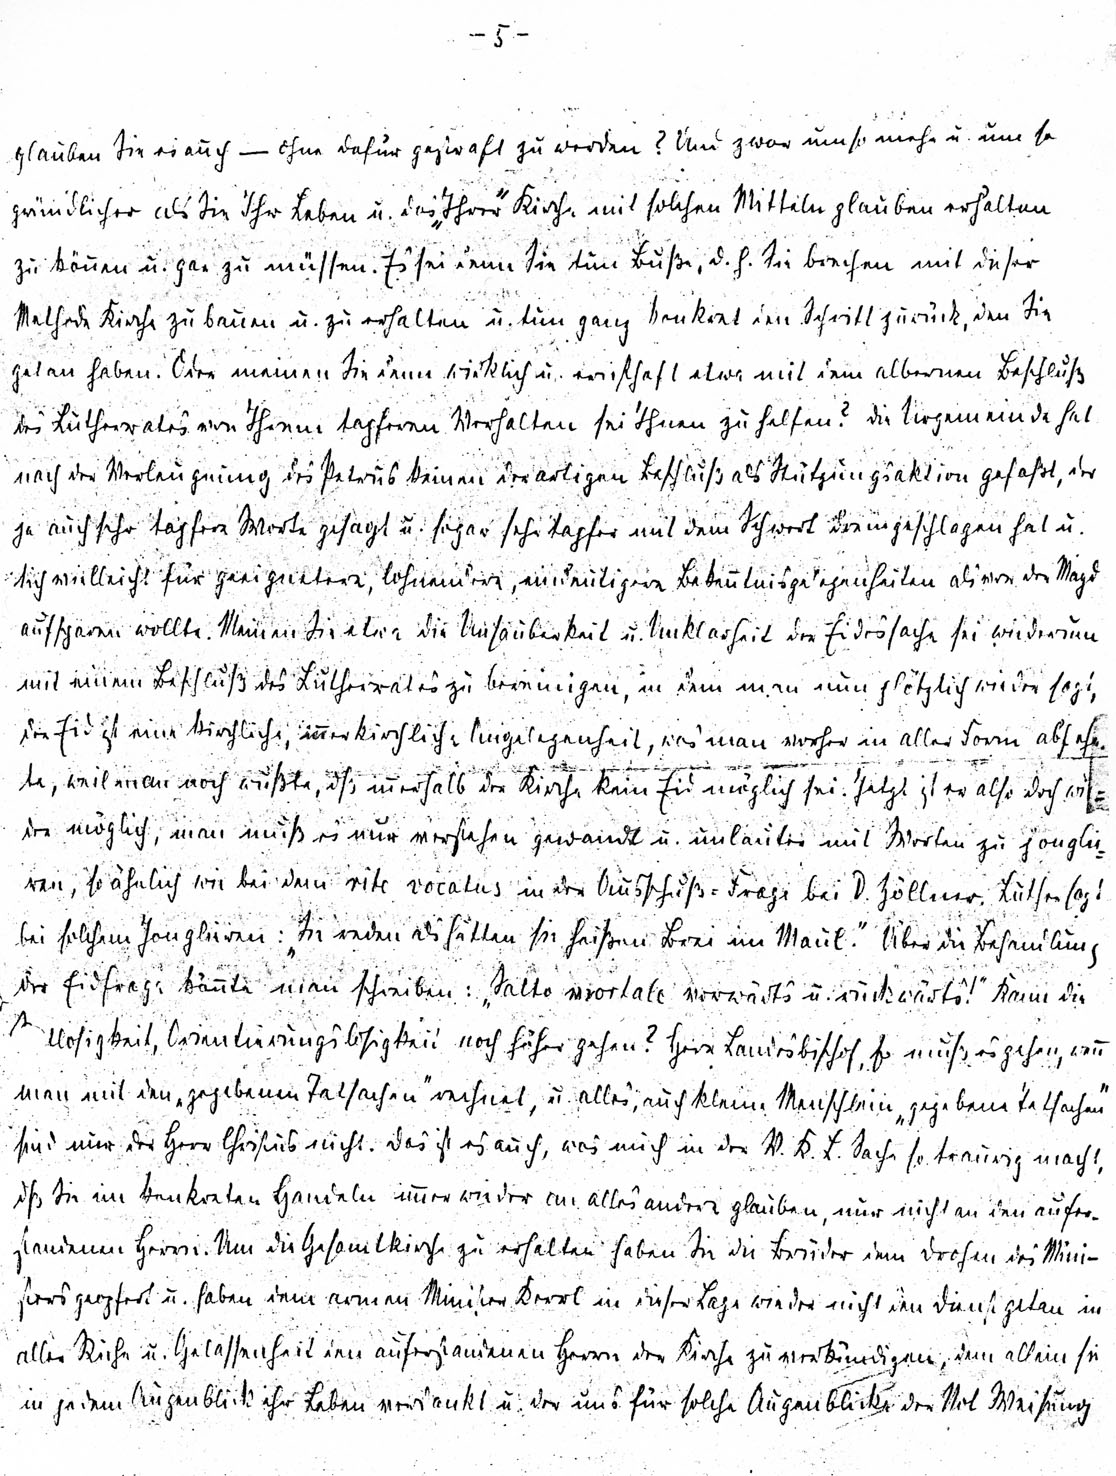 - 5 -
glauben Sie es auch — ohne dafür gestraft zu werden? Und zwar umso mehr u. um so
gründlicher als Sie Ihr Leben u. das „Ihrer" Kirche mit solchen Mitteln glauben erhalten
zu können u. gar zu müssen. Es sei denn Sie tun Buße, d. h. Sie brechen mit dieser
Methode Kirche zu bauen u. zu erhalten u. tun ganz konkret den Schritt zurück, den Sie
getan haben. Oder meinen Sie denn wirklich u. ernsthaft etwa mit dem albernen Beschluß
des Lutherrates von Ihrem tapferen Verhalten sei Ihnen zu helfen? Die Urgemeinde hat
nach der Verleugnung des Petrus keinen derartigen Beschluß als Stützungsaktion gefaßt, der
ja auch sehr tapfere Worte gesagt u. sogar sehr tapfer mit dem Schwert dreingeschlagen hat u.
sich vielleicht für geeignetere, lohnendere, eindeutigere Bekenntnisgelegenheiten als vor der Magd
aufsparen wollte. Meinen Sie etwa die Unsauberkeit u. Unklarheit der Eidessache sei wiederum
mit einem Beschluß des Lutherrates zu bereinigen, in dem man nun plötzlich wieder sagt,
der Eid ist eine kirchliche, innerkirchliche Angelegenheit, was man vorher in aller Form ablehn-
te, weil man noch wußte, dß innerhalb der Kirche kein Eid möglich sei. Jetzt ist er also doch wie=
der möglich, man muß es nur verstehen gewandt u. unlauter mit Worten zu jonglie=
ren, so ähnlich wie bei dem rite vocatus in der Ausschuß=Frage bei D. Zöllner. Luther sagt
bei solchem Jonglieren: „Sie reden als hätten sie heißen Brei im Maul." Über die Behandlung
der Eidfrage könnte man schreiben: „Salto mortale vorwärts u. rückwärts!" Kann die
llosigkeit, Orientierungslosigkeit noch höher gehen? Herr Landesbischof, so muß es gehen, wenn
man mit den „gegebenen Tatsachen" rechnet, u. alles, auch kleine Menschlein „gegebene Tatsachen"
sind nur der Herr Christus nicht. Das ist es auch, was mich in der V. K. L. Sache so traurig macht,
dß Sie im konkreten Handeln immer wieder an alles andere glauben, nur nicht an den aufer-
standenen Herrn. Um die Gesamtkirche zu erhalten haben Sie die Brüder dem Drohen des Mini-
sters geopfert u. haben dem armen Minister Kerrl in dieser Lage wieder nicht den Dienst getan in
aller Ruhe u. Gelassenheit den auferstandenen Herrn der Kirche zu verkündigen, dem allein sie
in jedem Augenblick ihr Leben verdankt u. der uns für solche Augenblicke der Not Weisung